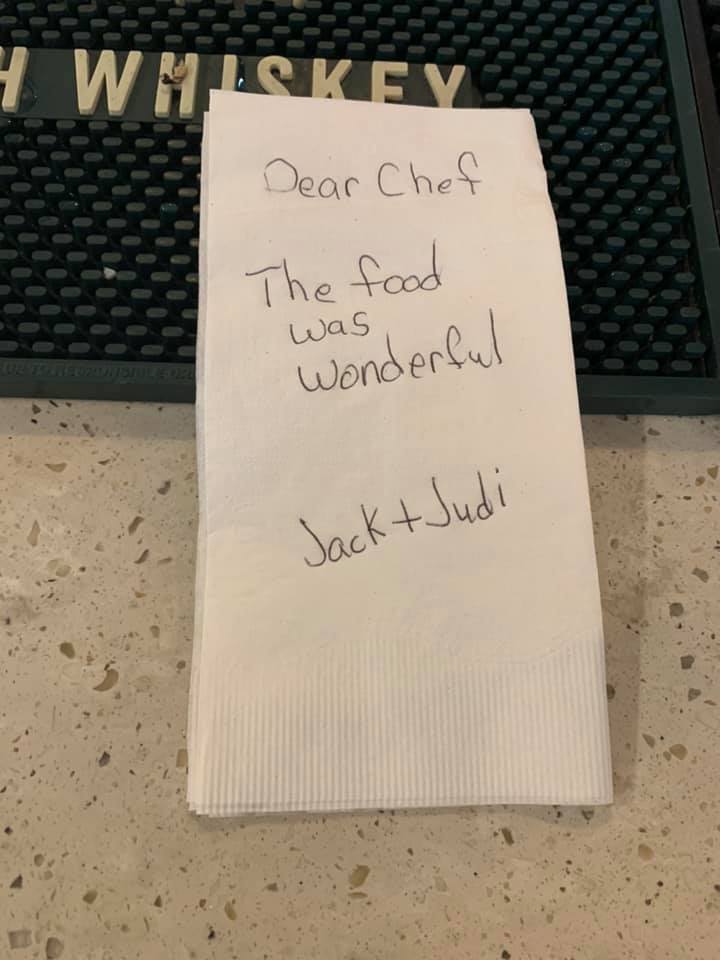 H WHISKEY
Dear Chef
The food
was
wonderful
Jack + Judi